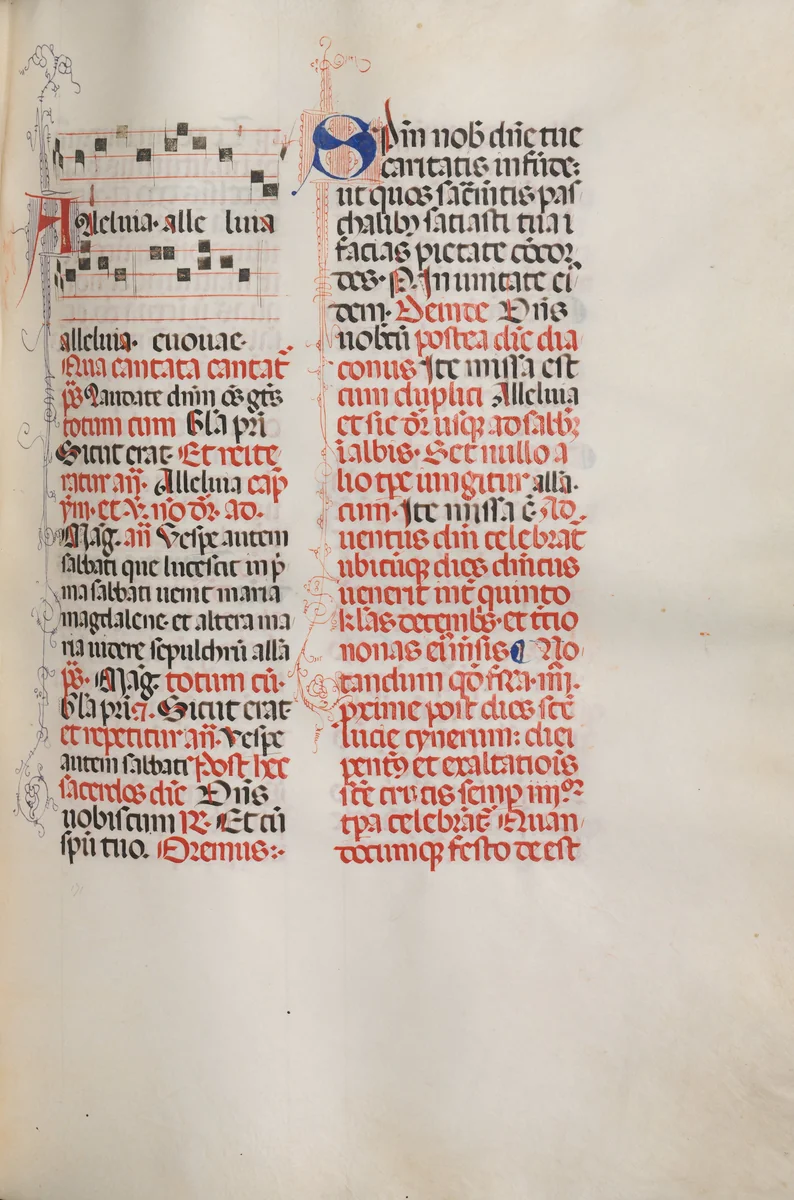 Alleluia· alle luia
alleluia· euouae·
Qua cantata cantat̄
p̄s Laudate dnm̄ oēs gētes
totum cum Glā pri
Sicut erat· Et reite
ratur añ· Alleluia cap̄
ym̄· et v̄· nō dr̄· ad·
Mag̃· añ Vespe autem
sabbati que lucescit in p̄
ma sabbati uenit maria
magdalene· et altera ma
ria uidere sepulchrū allā
p̄s· Mag̃· totum cū·
Glā pri· ⁊· Sicut erat
et repetitur añ· Vespe
autem sabbati Post hec
sacerdos dic̄ Dn̄s
uobiscum ℞· Et cū
spū tuo. Oremus:·
Spm̄ nob̄ dn̄e tue
caritatis infūde:
ut quos sac̄mtis pas
chalibȝ satiasti tua ī
facias pietate cōcor
des· P. In unitate ei
dem· Deinde Dn̄s
uobcū postea dic̄ dia
conus Ite missa est
cum duplici Alleluia
et sic dr̄ usqȝ ad sabb̄
ī albis· Set nullo a
lio tp̄e iungitur allā·
cum· Ite missa ē Ad
uentus dn̄i celebrat̄
ubicūqȝ dies dn̄icus
uenerit int̄ quinto
kl̄as decembs̄· et t̄tio
nonas eī m̄sis No
tandum qd̄ fr̄ia· iiij·
prime post dies scē
lucie cynerum: diei
pentȝ et exaltatiōis
scē crucis semp iiijor
tp̄a celebrāt̄ Quan
documqȝ festo de est